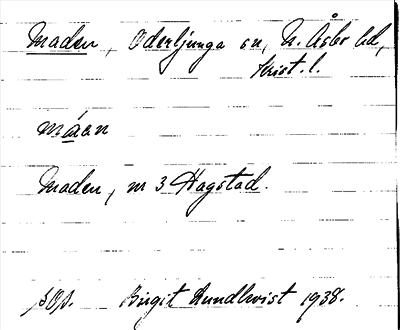 Maden, Oderljunga sn, N. Åsbo hd,
Krist. l.
måen
Maden, nr 3 Hagstad.
Birgit Lundkvist 1938.